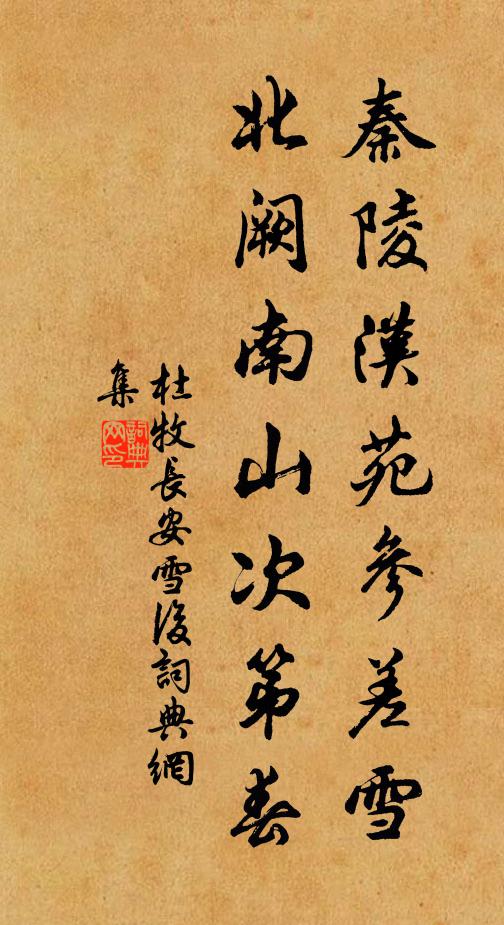 秦陵漢苑參差雪
北阙南山次第春
杜牧長安雪後詞典網
集
詞典網印